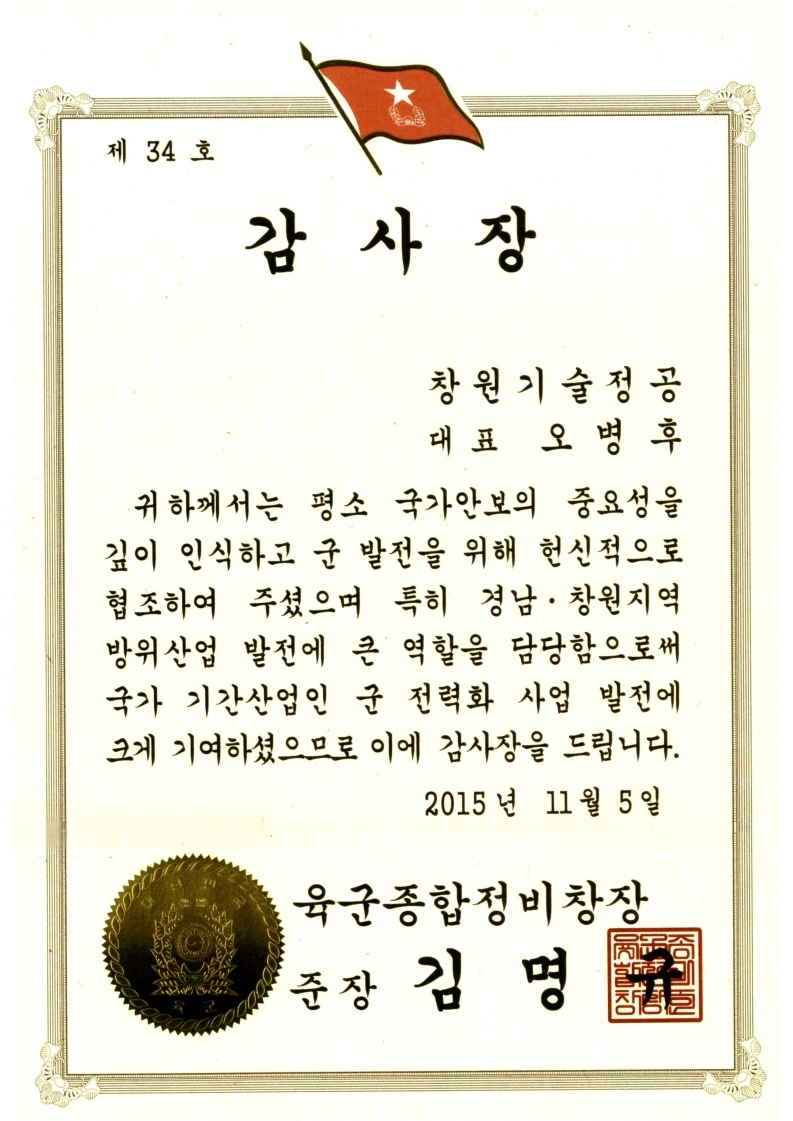 제 34 호
감 사 장
창원기술정공
대표 오병후
귀하께서는 평소 국가안보의 중요성을
깊이 인식하고 군 발전을 위해 헌신적으로
협조하여 주셨으며 특히 경남·창원지역
방위산업 발전에 큰 역할을 담당함으로써
국가 기간산업인 군 전력화 사업 발전에
크게 기여하셨으므로 이에 감사장을 드립니다.
2015년 11월 5일
육군종합정비창장
준장 김명규
육군